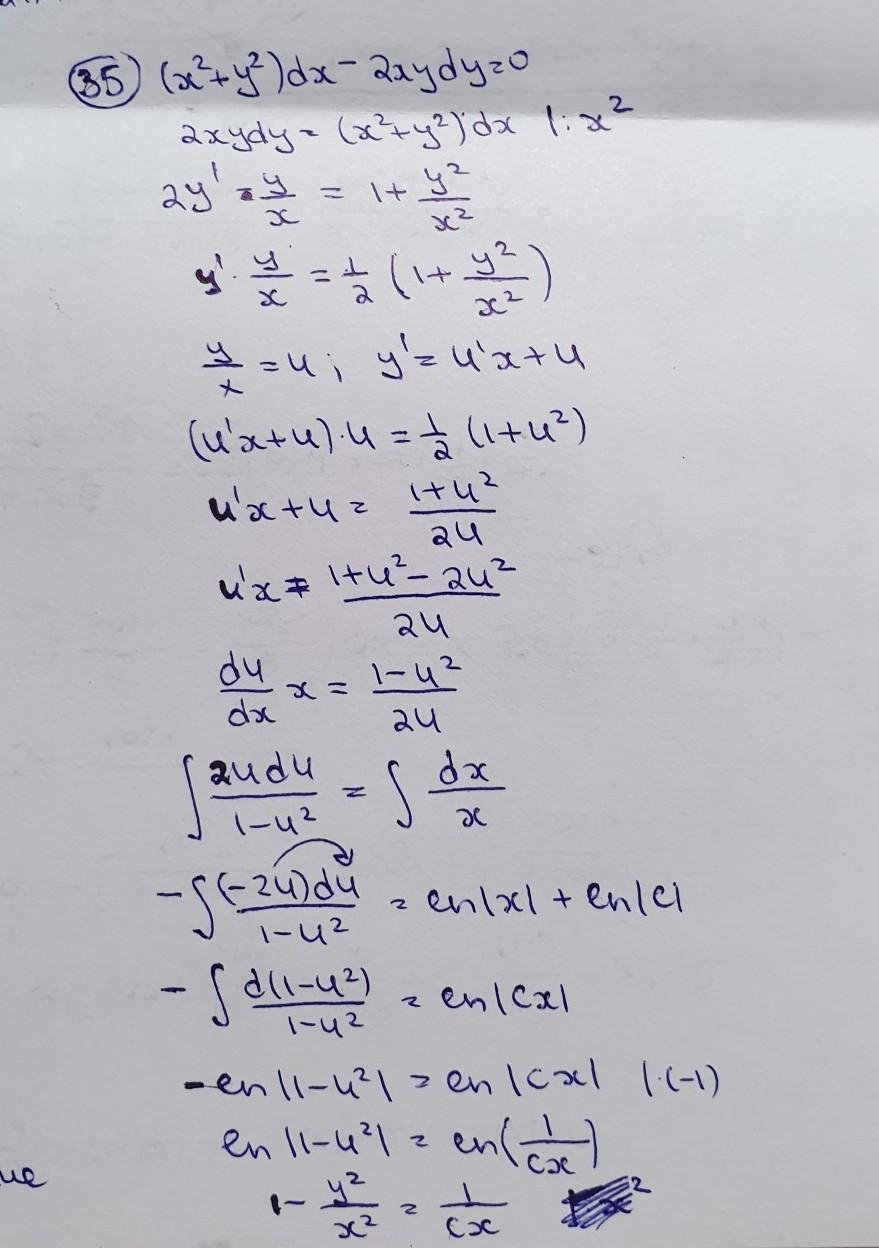 35) (x²+y²)dx - 2xydy=0
2xydy = (x²+y²)dx |: x²
2y' · y/x = 1 + y²/x²
y' · y/x = 1/2 (1 + y²/x²)
y/x = u; y' = u'x+u
(u'x+u)·u = 1/2 (1+u²)
u'x+u = (1+u²)/2u
u'x = (1+u²-2u²)/2u
du/dx x = (1-u²)/2u
∫ 2udu/(1-u²) = ∫ dx/x
-∫ (-2u)du/(1-u²) = ln|x| + ln|c|
-∫ d(1-u²)/(1-u²) = ln|cx|
-ln|1-u²| = ln|cx| |·(-1)
ln|1-u²| = ln(1/cx)
1 - y²/x² = 1/cx